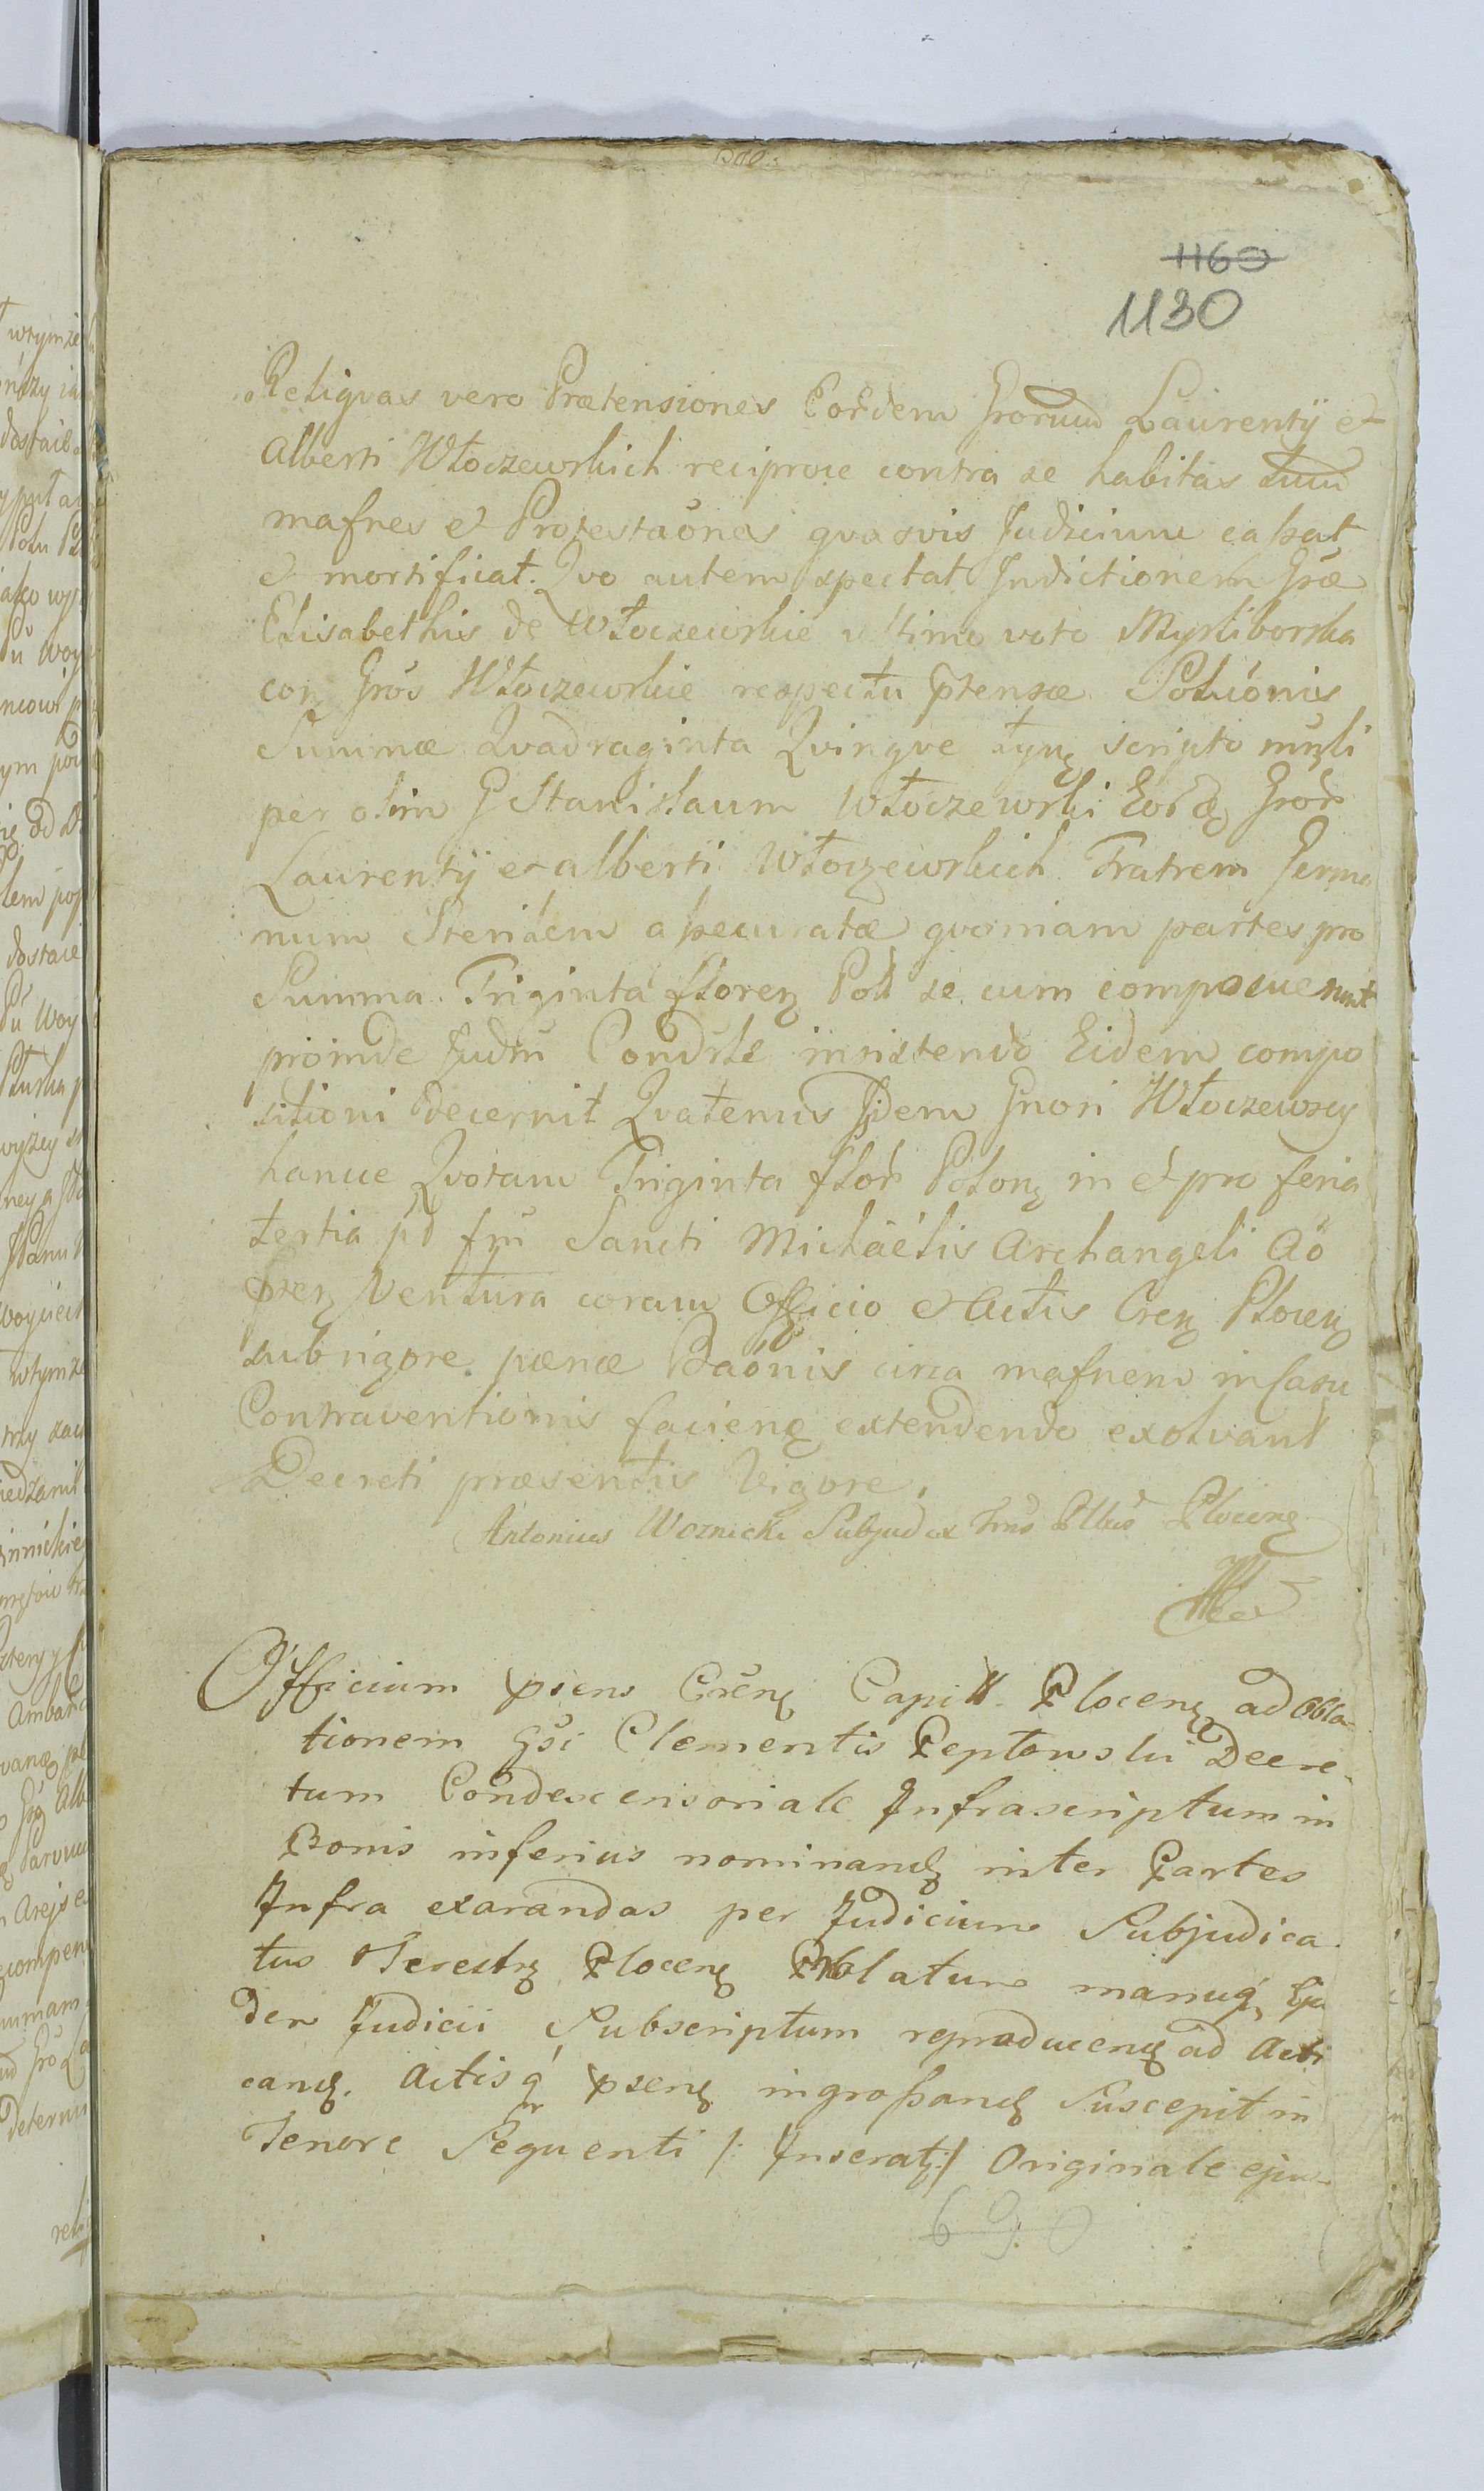 1160
1130
Religvas vero Prætensiones Eordem Grorum Laurentÿ et
Alberti Włoczewskich reciproce contra se habitas
mafnes et Protestaones qvasvis Judicium caßat
et mortificat. Qvo autem spectat Indictionem Græ
Elisabethis de Włoczewskie ultimo voto Mysliborska
con Gros Włoczewskie respectu ptensæ Solucionis
Summæ Qvadraginta Qvinqve scripto
per olim G Stanislaum Włoczewski Gror
Laurentÿ et Alberti Włoczewskich Fratrem Germa
num Sterilem aßecuratæ qvoniam partes pro
Summa Triginta floren Poll se cum composuerunt
proinde Judm Condrle insistendo Eidem compo
sitioni decernit Qvatenus Jidem Gnori Włoczewscy
hancce Qvotam Triginta flor Polon in et pro feria
tertia pd fm Sancti Michaëlis Archangeli Aö
pren Ventura coram Officio et Actis Cren Plocen
sub rigore pœnæ Baonis circa mafnem in Casu
Contraventionis faciend extendendo exolvant
Decreti præsentis Vigore.
Antonius Woznicki Subjudex Trris Plocens
Officium psens Crens Capitl. Plocens ad Obla-
tionem Gsi Clementis Peptowski Decre-
tum Condescensoriale Infrascriptum in
Bonis inferius nominand inter Partes
Infra exarandas per Judicium Subjudica-
tus Terestr Plocens Prolatum manuq Eju
dem Judicii Subscriptum reproducens ad Acti
cand. Actisq psens ingroßand Suscepit in
Tenore Seqventi /: Inseratr :/ Originale ejus-